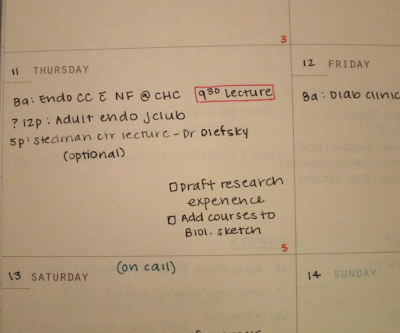 3
11 THURSDAY
8a: Endo CC c̄ NF @ CHC 9³⁰ Lecture
? 12p: Adult endo jclub
5p: Stedman ctr lecture - Dr Olefsky
(optional)
□ Draft research
experience
□ Add courses to
Biol. sketch
5
12 FRIDAY
8a: Diab clinic
13 SATURDAY (on call)
14 SUNDAY